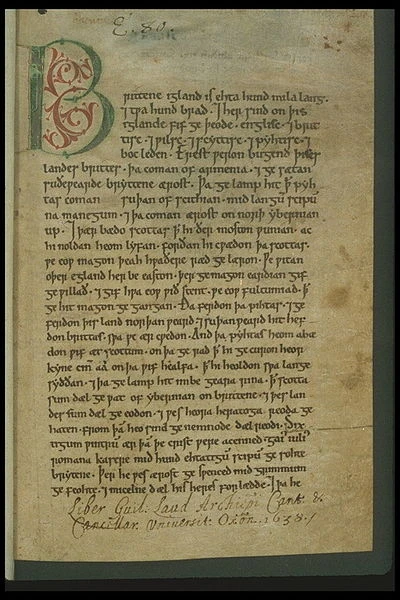 E. 80.
Brittene igland is ehta hund mila lang.
⁊ tƿa hund brad. ⁊ her sind on þis
iglande fif ge þeode. englisc. ⁊ brit
tisc. ⁊ ƿilsc. ⁊ scyttisc. ⁊ pyhtisc. ⁊
boc leden. Erest ƿeron bugend þises
landes brittes. þa coman of armenia. ⁊ ge sætan
suðeƿearde bryttene ærost. Þa ge lamp hit þ̄ pyh
tas coman suþan of scithian. mid langū scipū
na manegum. ⁊ þa coman ærost on norþ ybernian
up. ⁊ þær bædo scottas þ̄ hi ðer moston ƿunian. ac
hi noldan heom lyfan. forðan hi cƿædon þa scottas.
ƿe eoƿ magon þeah hƿaðere ræd ge læron. Ƿe ƿitan
oþer egland her be easton. þer ge magon eardian gif
ge ƿillað. ⁊ gif hƿa eoƿ ƿið stent. ƿe eoƿ fultumiað. þ̄
ge hit magon ge gangan. Ða ferdon þa pihtas. ⁊ ge
ferdon þis land norþan ƿeard. ⁊ suþan ƿeard hit hef
don brittas. sƿa ƿe ær cƿedon. And þa pyhtas heom abæ
don ƿif æt scottum. on þa ge rad þ̄ hi ge curon heora
kyne cinn aa on þa ƿif healfa. þ̄ hi heoldon sƿa lange
syððan. ⁊ þa ge lamp hit imbe geara rina. þ̄ scotta
sum dæl ge ƿat of ybernian on brittene. ⁊ þes lan
des sum dæl ge eodon. ⁊ ƿes heora heratoga reoda ge
haten. from þā heo sind ge nemnode dæl reodi. Six
tigum ƿintrū ær þā þe crist ƿere acenned. gaiꝰ iuliꝰ
romana kasere mid hund ehtatigū scipū ge sohte
brytene. Þer he ƿes ærost ge sƿenced mid grimmum
ge feohte. ⁊ micelne dæl his heres forlædde. ⁊ þa he
Liber Guil: Laud Archiepī Cant. &
Cancellar. Universit: Oxon. 1638.